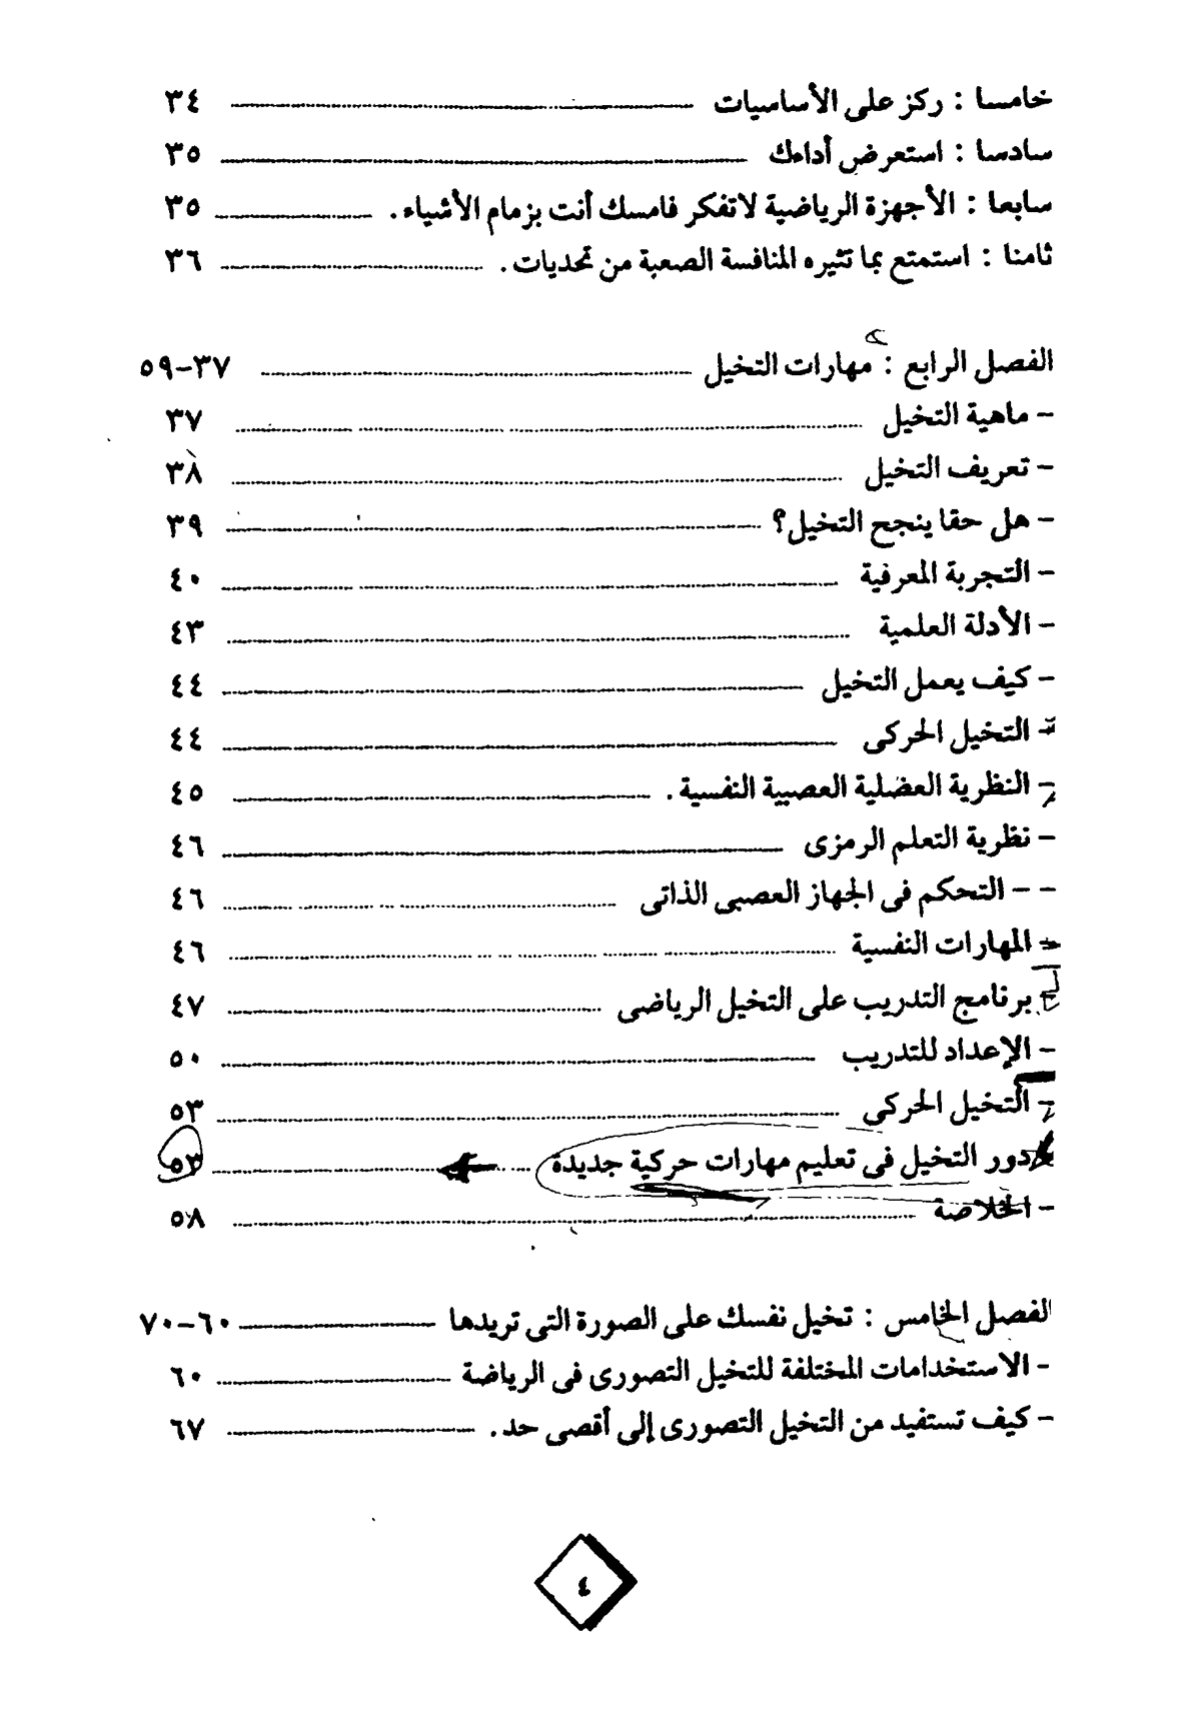 خامسا : ركز على الأساسيات ٣٤
سادسا : استعرض أداءك ٣٥
سابعا : الأجهزة الرياضية لاتفكر فامسك أنت بزمام الأشياء. ٣٥
ثامنا : استمتع بما تثيره المنافسة الصعبة من تحديات. ٣٦
الفصل الرابع : مهارات التخيل ٣٧-٥٩
- ماهية التخيل ٣٧
- تعريف التخيل ٣٨
- هل حقا ينجح التخيل؟ ٣٩
- التجربة المعرفية ٤٠
- الأدلة العلمية ٤٣
- كيف يعمل التخيل ٤٤
- التخيل الحركى ٤٤
- النظرية العضلية العصبية النفسية. ٤٥
- نظرية التعلم الرمزى ٤٦
- - التحكم فى الجهاز العصبى الذاتى ٤٦
- المهارات النفسية ٤٦
- برنامج التدريب على التخيل الرياضى ٤٧
- الإعداد للتدريب ٥٠
- التخيل الحركى ٥٣
- دور التخيل فى تعليم مهارات حركية جديدة ٥٣
- الخلاصة ٥٨
الفصل الخامس : تخيل نفسك على الصورة التى تريدها ٦٠-٧٠
- الاستخدامات المختلفة للتخيل التصورى فى الرياضة ٦٠
- كيف تستفيد من التخيل التصورى إلى أقصى حد. ٦٧
٤